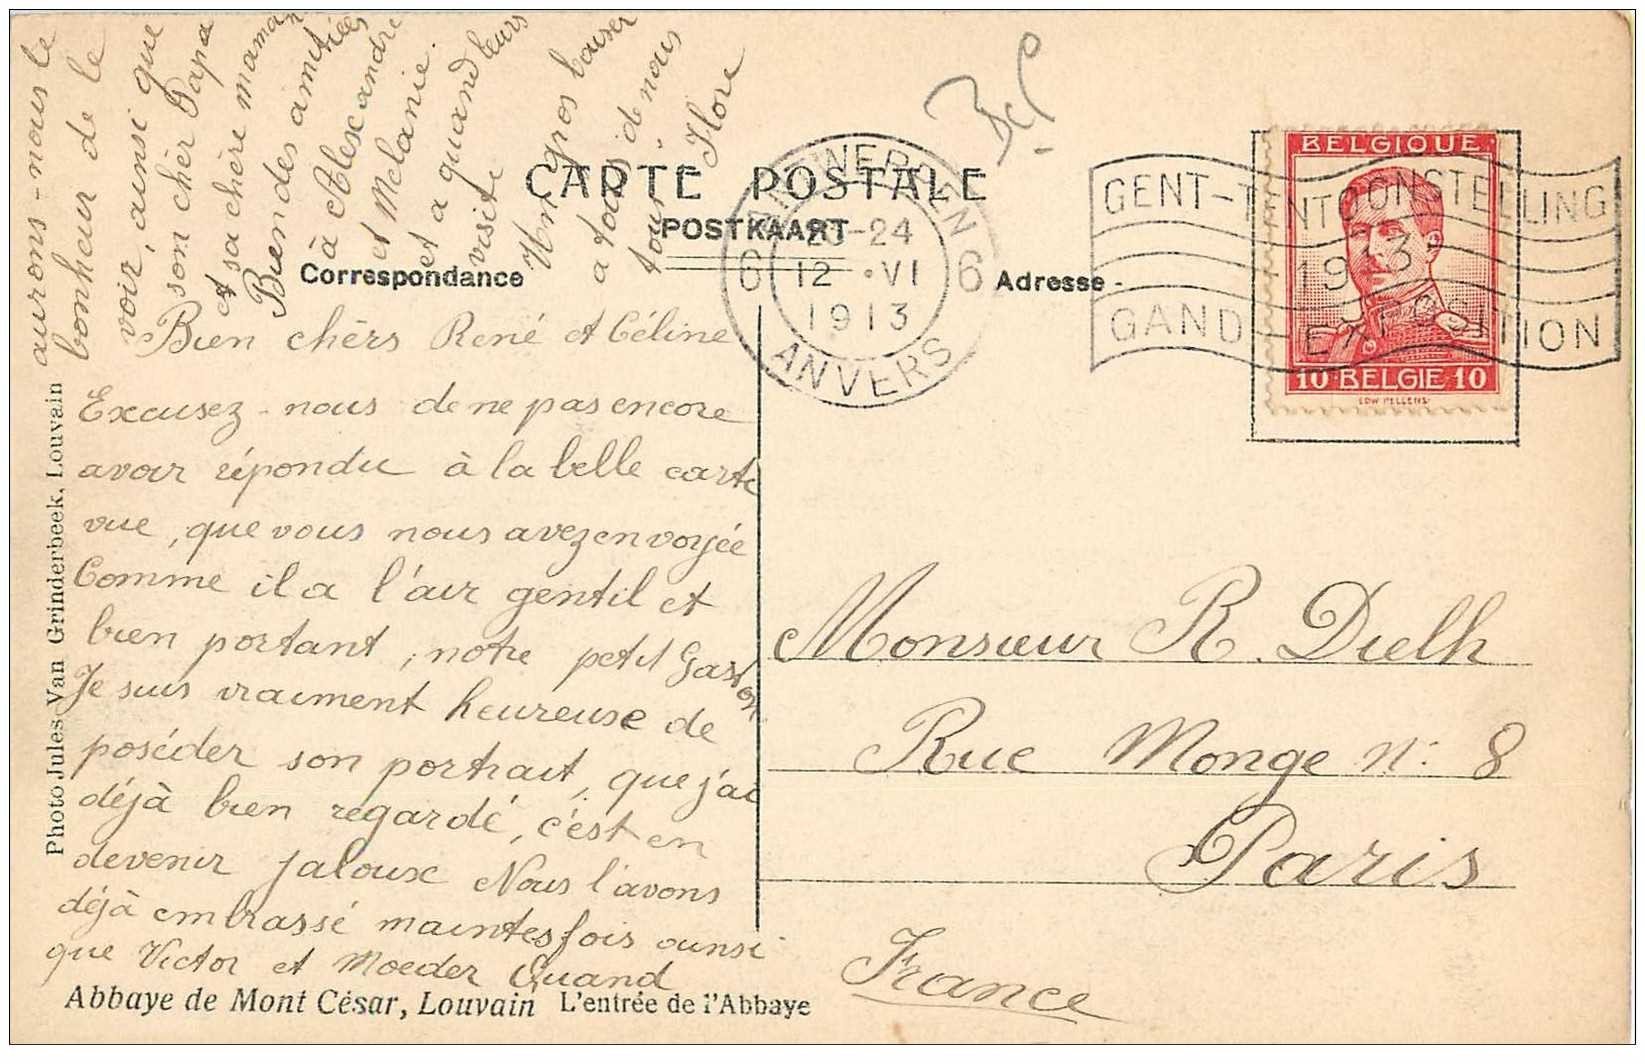 CARTE POSTALE
POSTKAART
Correspondance
Adresse
Bien chèrs René et Céline
Excusez-nous de ne pas encore
avoir répondu à la belle carte
vue, que vous nous avez envoyée
Comme il a l'air gentil et
bien portant, notre petit Gaston
Je suis vraiment heureuse de
poséder son portrait, que j'ai
déjà bien regardé, c'est en
devenir jaloux Nous l'avons
déjà embrassé maintes fois ainsi
que Victor et Moeder Quand
aurons-nous le
bonheur de le
voir, ainsi que
son chèr Papa
et sa chère maman
Bien des amitiées
à Alexcandre
et Melanie.
et a quand leurs
visite
Un gros baiser
a tous de nous
tous.
Flore
Monsieur R. Dielh
Rue Monge N: 8
Paris
France
ANTWERPEN
6 6
20-24
12 •VI
1913
ANVERS
GENT-TENTOONSTELLING
1913
GAND-EXPOSITION
BELGIQUE
10 BELGIE 10
EDW PELLENS
Photo Jules Van Grinderbeek, Louvain
Abbaye de Mont César, Louvain L'entrée de l'Abbaye